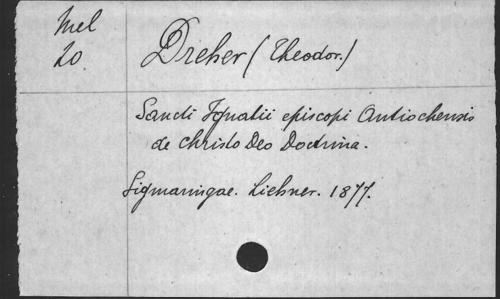 Mel
20.
Dreher (Theodor.)
Sancti Ignatii episcopi Antiochensis
de Christo Deo Doctrina.
Sigmaringae. Liehner. 1877.